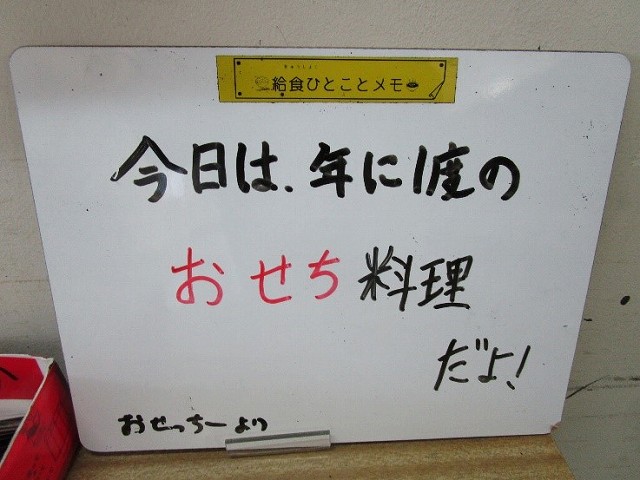 給食ひとことメモ
今日は、年に1度の
おせち料理
だよ!
おせっちーより